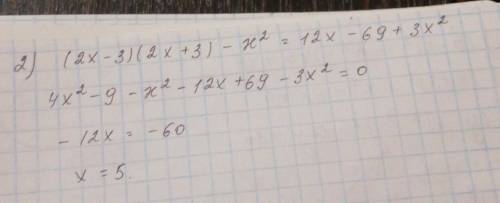 2) (2x-3)(2x+3) - x² = 12x - 69 + 3x²
4x² - 9 - x² - 12x + 69 - 3x² = 0
- 12x = -60
x = 5.